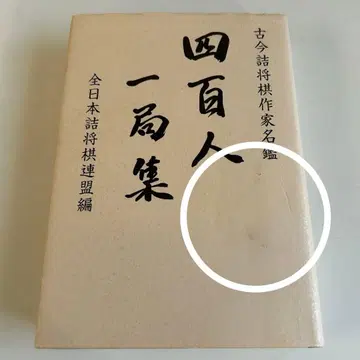 古今詰将棋作家名鑑
四百人
一局集
全日本詰将棋連盟編